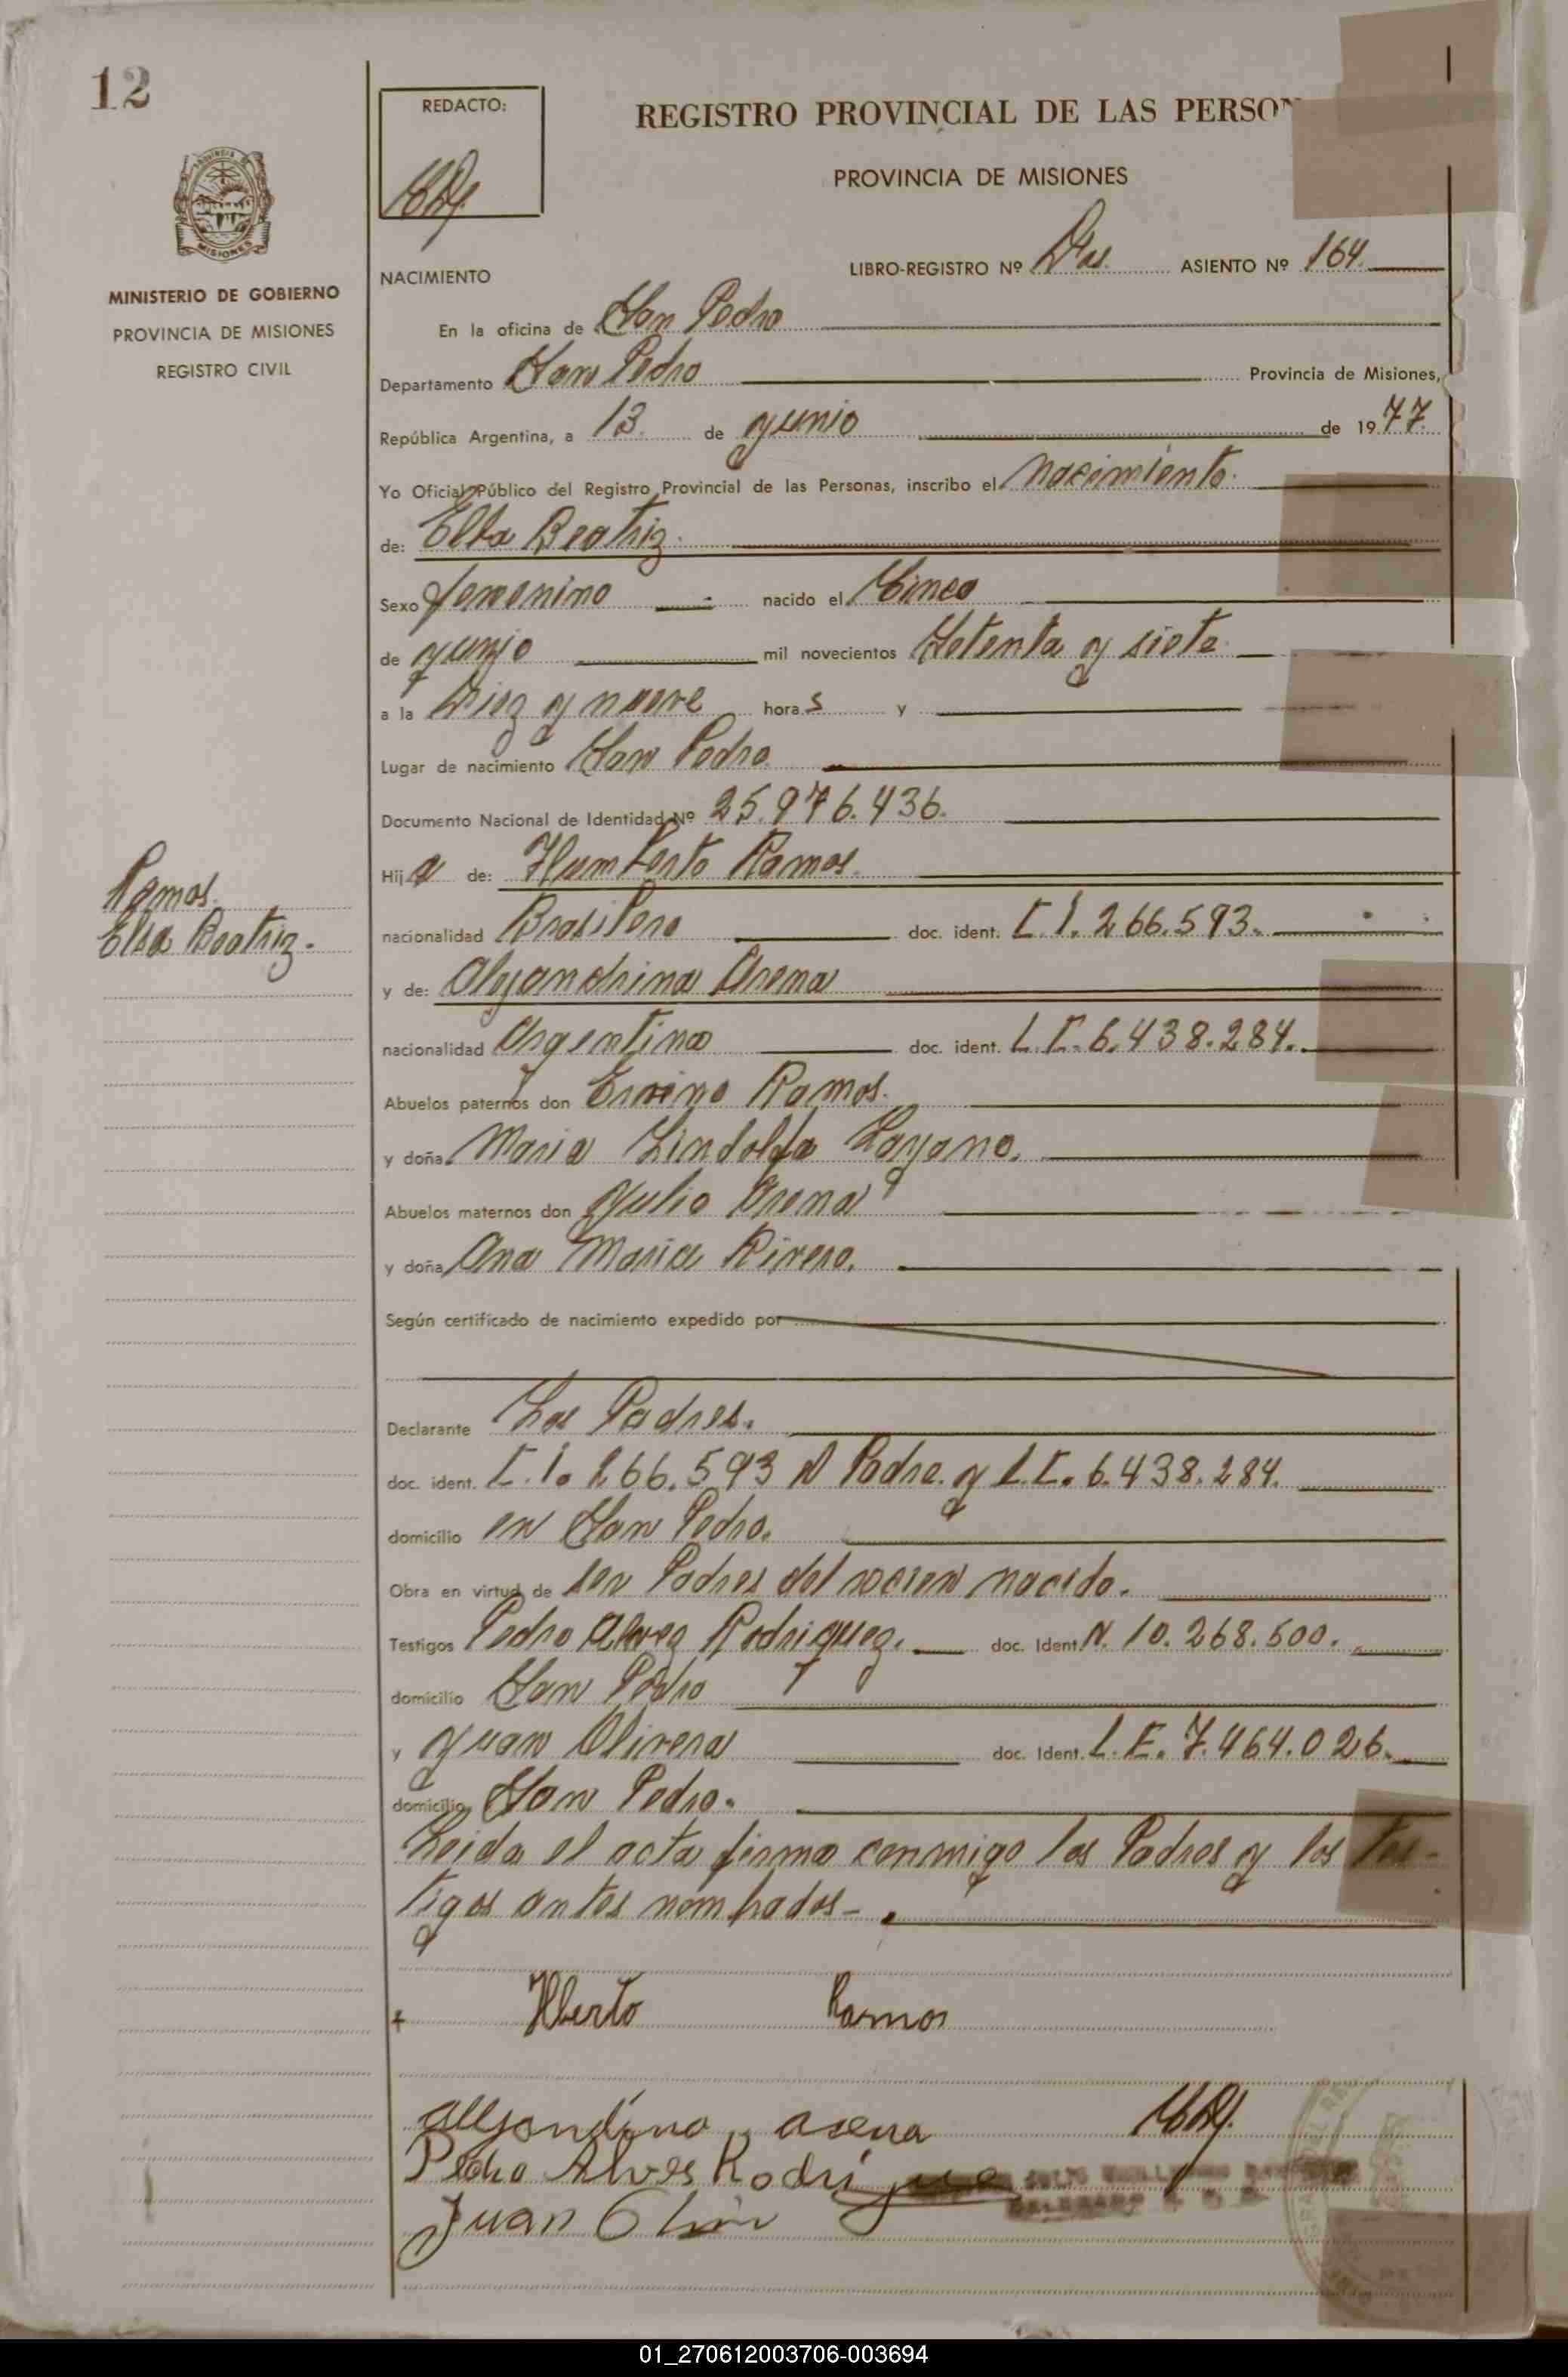 12
REDACTO:
REGISTRO PROVINCIAL DE LAS PERSON
PROVINCIA DE MISIONES
MISIONES
MINISTERIO DE GOBIERNO
PROVINCIA DE MISIONES
REGISTRO CIVIL
LIBRO-REGISTRO Nº Dos ASIENTO Nº 164
NACIMIENTO
En la oficina de San Pedro
Departamento San Pedro Provincia de Misiones,
República Argentina, a 13 de junio de 1977
Yo Oficial Público del Registro Provincial de las Personas, inscribo el nacimiento
de: Elba Beatriz
Sexo femenino nacido el Cinco
de junio mil novecientos Setenta y siete
a la Diez y nueve horas y
Lugar de nacimiento San Pedro
Documento Nacional de Identidad Nº 25.976.436.
Hija de: Humberto Ramos
Ramos
Elsa Beatriz.
nacionalidad Brasilero doc. ident. C.I. 266.593.
y de: Alejandrina Arena
nacionalidad Argentina doc. ident. L.C. 6.438.284.
Abuelos paternos don Ramos.
y doña Maria Lindolfa
Abuelos maternos don Julio Arena
y doña Ana Maria Rivero.
Según certificado de nacimiento expedido por
Declarante Los Padres.
doc. ident. C.I. 266.593 el Padre y L.C. 6.438.284.
domicilio en San Pedro.
Obra en virtud de ser Padres del recien nacido.
Testigos Pedro Alvez Rodriguez. doc. Ident. N. 10.268.500.
domicilio San Pedro
y Juan Olivera doc. Ident. L.E. 7.464.026.
domicilio San Pedro.
Leida el acta firma conmigo los Padres y los tes-
tigos antes nombrados-.
Hberto Ramos
arena
Pedro Alves Rodrigue
Juan
01_270612003706-003694